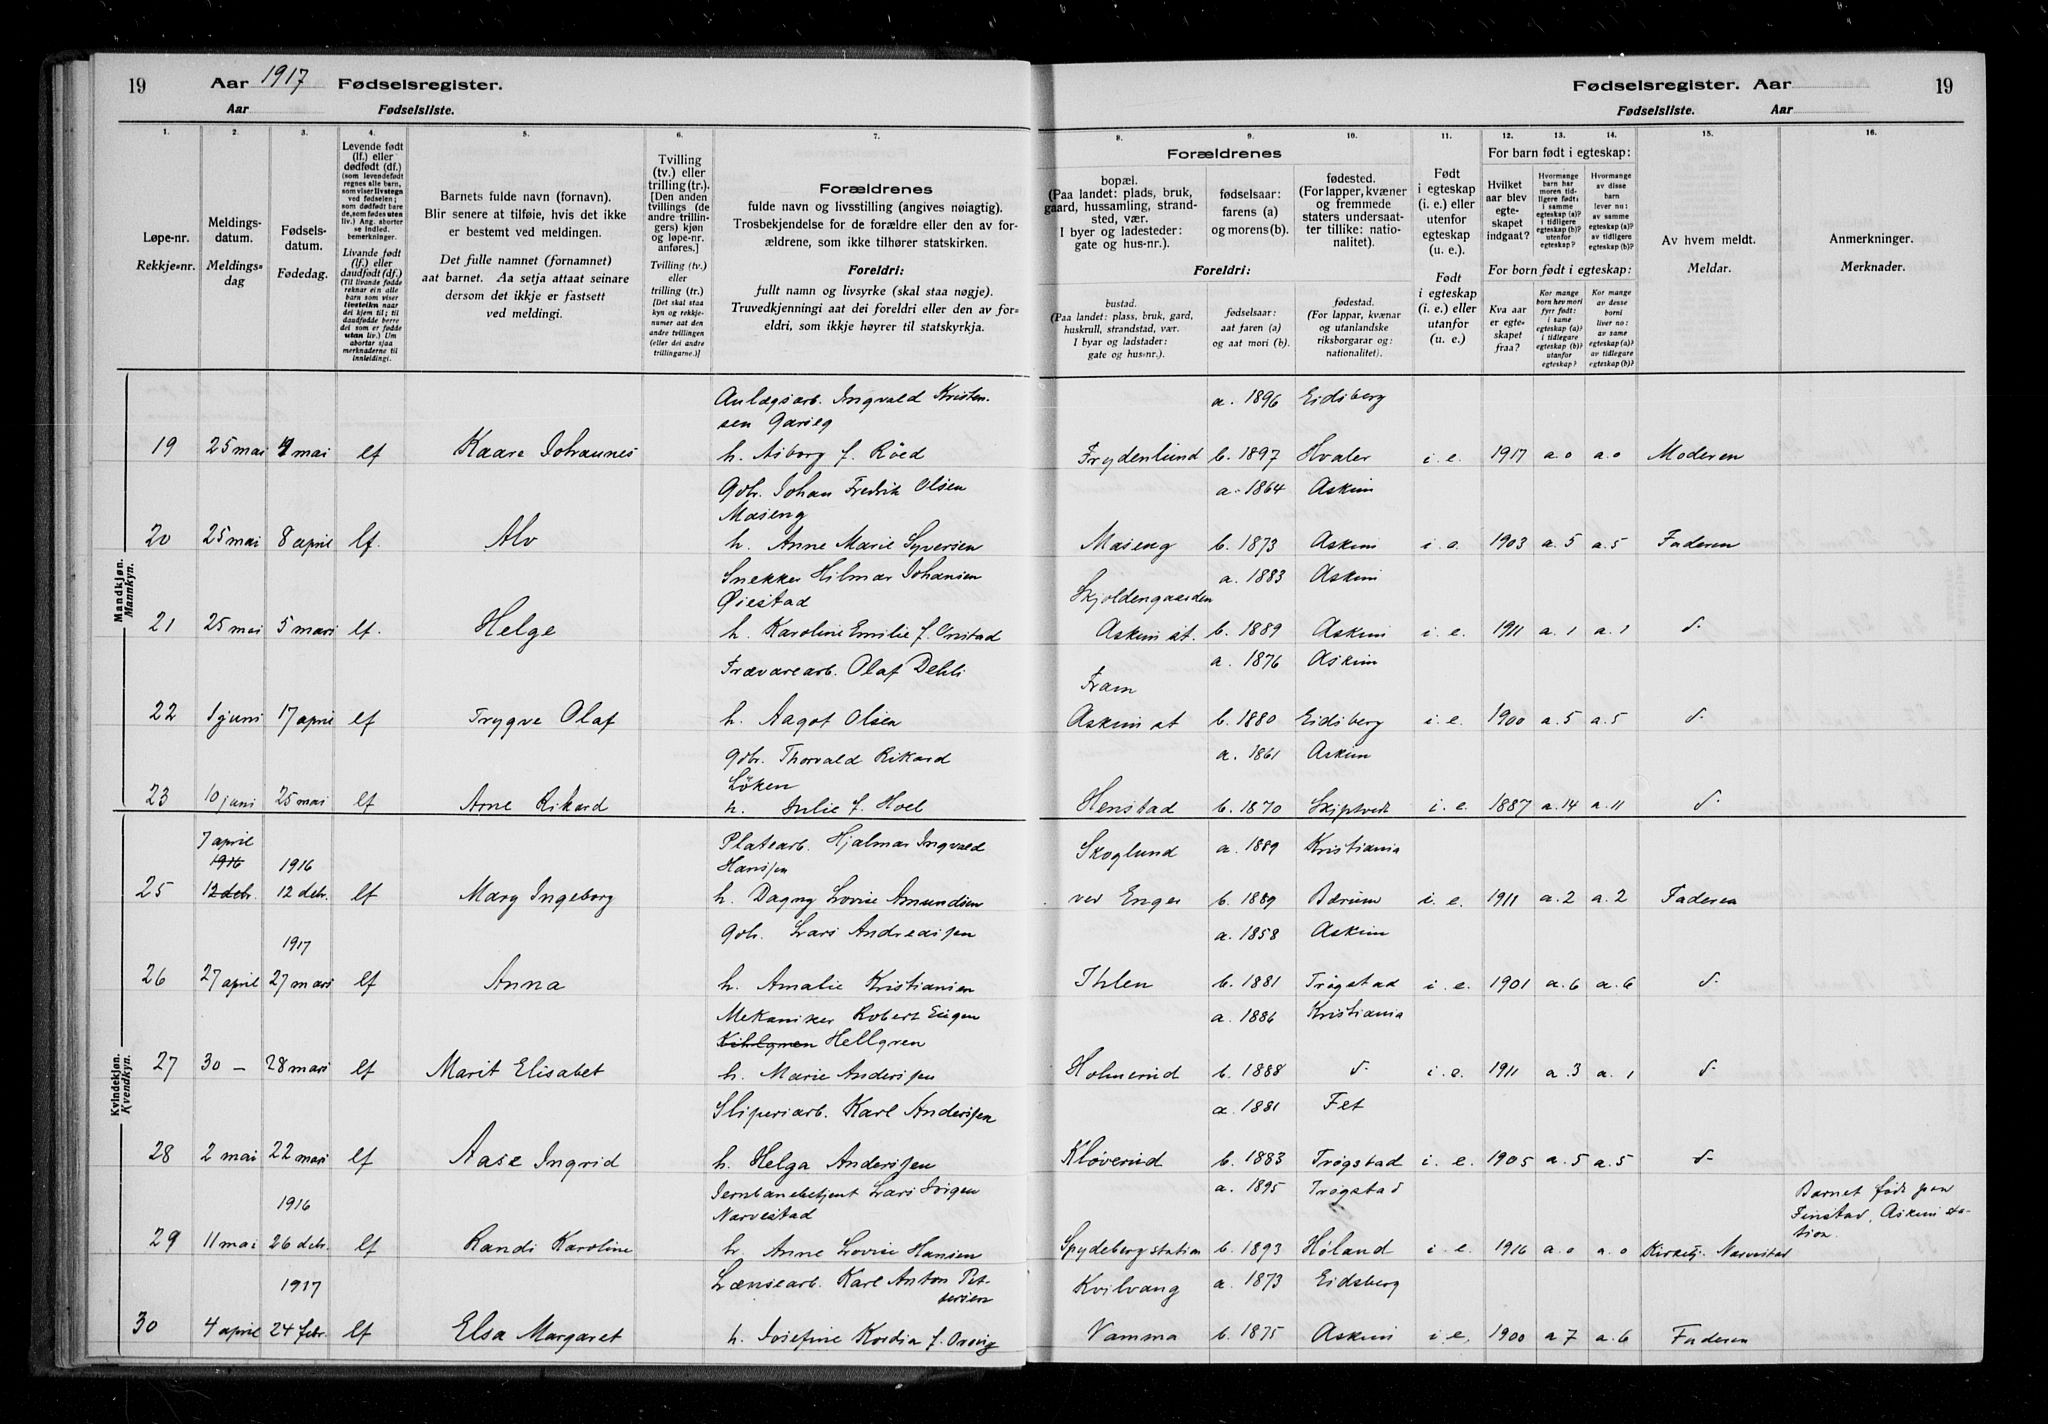 19 Aar 1917 Fødselsregister.
Aar Fødselsliste.
Fødselsregister. Aar 19
Fødselsliste. Aar
1. 2. 3. 4. 5. 6. 7. 8. 9. 10. 11. 12. 13. 14. 15. 16.
Løpe-nr.
Rekkje-nr.
Meldings-
datum.
Meldings-
dag
Fødsels-
datum.
Fødedag.
Levende født
(lf.) eller
dødfødt (df.)
(som levendefødt
regnes alle barn,
som viser livstegn
ved fødselen;
som dødfødt bare
de, som fødes uten
liv.) Ang. aborter
se indled.
bemerkninger.
Livande født
(lf.) eller
daudfødt (df.)
(Til livande fødde
reknar ein alle
barn som viser
livsteikn naar
dei kjem til; til
daudfødde berre
dei som er fødde
utan liv.) Um
abortar sjaa
merknaderne til
innleidingi.
Barnets fulde navn (fornavn).
Blir senere at tilføie, hvis det ikke
er bestemt ved meldingen.
Det fulle namnet (fornamnet)
aat barnet. Aa setja attaat seinare
dersom det ikkje er fastsett
ved meldingi.
Tvilling
(tv.) eller
trilling (tr.).
[Den anden
tvillings (de
andre trillin-
gers) kjøn
og løpe-nr.
anføres.]
Tvilling (tv.)
eller
trilling (tr.)
[Det skal staa
kyn og rekkje-
numer aat den
andre tvillingen
(eller dei andre
trillingarne.)]
Forældrenes
fulde navn og livsstilling (angives nøiagtig).
Trosbekjendelse for de forældre eller den av for-
ældrene, som ikke tilhører statskirken.
Foreldri:
fullt namn og livsyrke (skal staa nøgje).
Truvedkjenningi aat dei foreldri eller den av for-
eldri, som ikkje høyrer til statskyrkja.
Forældrenes
bopæl.
(Paa landet: plads, bruk,
gaard, hussamling, strand-
sted, vær.
I byer og ladesteder:
gate og hus-nr.).
fødselsaar:
farens (a)
og morens (b).
fødested.
(For lapper, kvæner
og fremmede
staters undersaat-
ter tillike: natio-
nalitet).
Foreldri:
bustad.
(Paa landet: plass, bruk, gard,
huskrull, strandstad, vær.
I byar og ladstader:
gate og hus-nr.).
fødselsaar:
aat faren (a)
og aat mori (b).
fødestad.
(For lappar, kvænar
og utanlandske
riksborgarar og:
nationalitet).
Født
i egteskap
(i. e.) eller
utenfor
egteskap
(u. e.).
Født
i egteskap
(i. e.) eller
utanfor
(u. e.)
For barn født i egteskap:
Hvilket
aar blev
egte-
skapet
indgaat?
Hvormange
barn har
moren tid-
ligere født:
i samme
egteskap (a)?
i tidligere
egteskap (b)?
utenfor
egteskap?
Hvormange
av disse
barn
lever nu:
av samme
egteskap (a)?
av tidligere
egteskap (b)?
For born født i egteskap:
Kva aar
er egte-
skapet
fraa?
Kor mange
born hev mori
fyrr født:
i same
egteskap (a)?
i tidlegare
egteskap (b)?
utanfor
egteskap?
Kor mange
av desse
borni
liver no:
av same
egteskap (a)?
av tidlegare
egteskap (b)?
Av hvem meldt.
Meldar.
Anmerkninger.
Merknader.
Mandkjøn.
Mannkyn.
Anlægsarb. Ingvald Kristen- a. 1896 Eidsberg
sen
19 25 mai mai lf Kaare Johannes h. Asborg f. Röed Frydenlund b. 1897 Hvaler i. e. 1917 a. 0 a. 0 Moderen
Gbr. Johan Fredrik Olsen a. 1864 Askim
Maseng
20 25 mai 8 april lf. Alv h. Anne Marie Syversen Maseng b. 1873 Askim i. e. 1903 a. 5 a. 5 Faderen
Snekker Hilmar Johansen a. 1883 Askim
Øiestad Skjoldengaarden
21 25 mai 5 mars lf. Helge h. Karoline Emilie f. Onstad Askim st. b. 1889 Askim i. e. 1911 a. 1 a. 1 d.
Trævarearb. Olaf Dehli a. 1876 Askim
Fram
22 1 juni 17 april lf Trygve Olaf h. Aagot Olsen Askim st b. 1880 Eidsberg i. e. 1900 a. 5 a. 5 d.
Gbr. Thorvald Rikard a. 1861 Askim
Löken
23 10 juni 25 mai lf Arne Rikard h. Julie f. Hoel Henstad b. 1870 Skiptvedt i. e. 1887 a. 14 a. 11 d.
Kvindekjøn.
Kvendkyn.
7 april Platearb. Hjalmar Ingvald a. 1889 Kristiania
1916 1916 Hanssen Skoglund
25 12 debr. 12 debr. lf Mary Ingeborg h. Dagny Lovise Amundsen ved Enger b. 1889 Bærum i. e. 1911 a. 2 a. 2 Faderen
1917 Gbr. Lars Andreassen a. 1858 Askim
26 27 april 27 mars lf Anna h. Amalie Kristiansen Ihlen b. 1881 Trøgstad i. e. 1901 a. 6 a. 6 d.
Mekaniker Robert Eugen a. 1886 Kristiania
Hellgren
27 30 — 28 mars lf Marit Elisabet h. Marie Anderssen Holmerud b. 1888 d. i. e. 1911 a. 3 a. 1 d.
Sliperiarb. Karl Anderssen a. 1881 Fet
28 2 mai 22 mars lf Aase Ingrid h. Helga Anderssen Kløverud b. 1883 Trøgstad i. e. 1905 a. 5 a. 5 d.
1916 Jernbanebetjent Lars a. 1895 Trøgstad Barnet født paa
Narvestad Finstad, Askim sta-
29 11 mai 26 debr. lf Randi Karoline h. Anne Lovise Hansen Spydeberg station b. 1893 Høland i. e. 1916 a. 0 a. 0 Kirketj. Narvestad tion.
1917 Lænsearb. Karl Anton Pet- Kvilvang a. 1873 Eidsberg
tersen
30 4 april 24 febr. lf Elsa Margaret h. Josefine Kordia f. Vamma b. 1875 Askim i. e. 1900 a 7 a. 6 Faderen